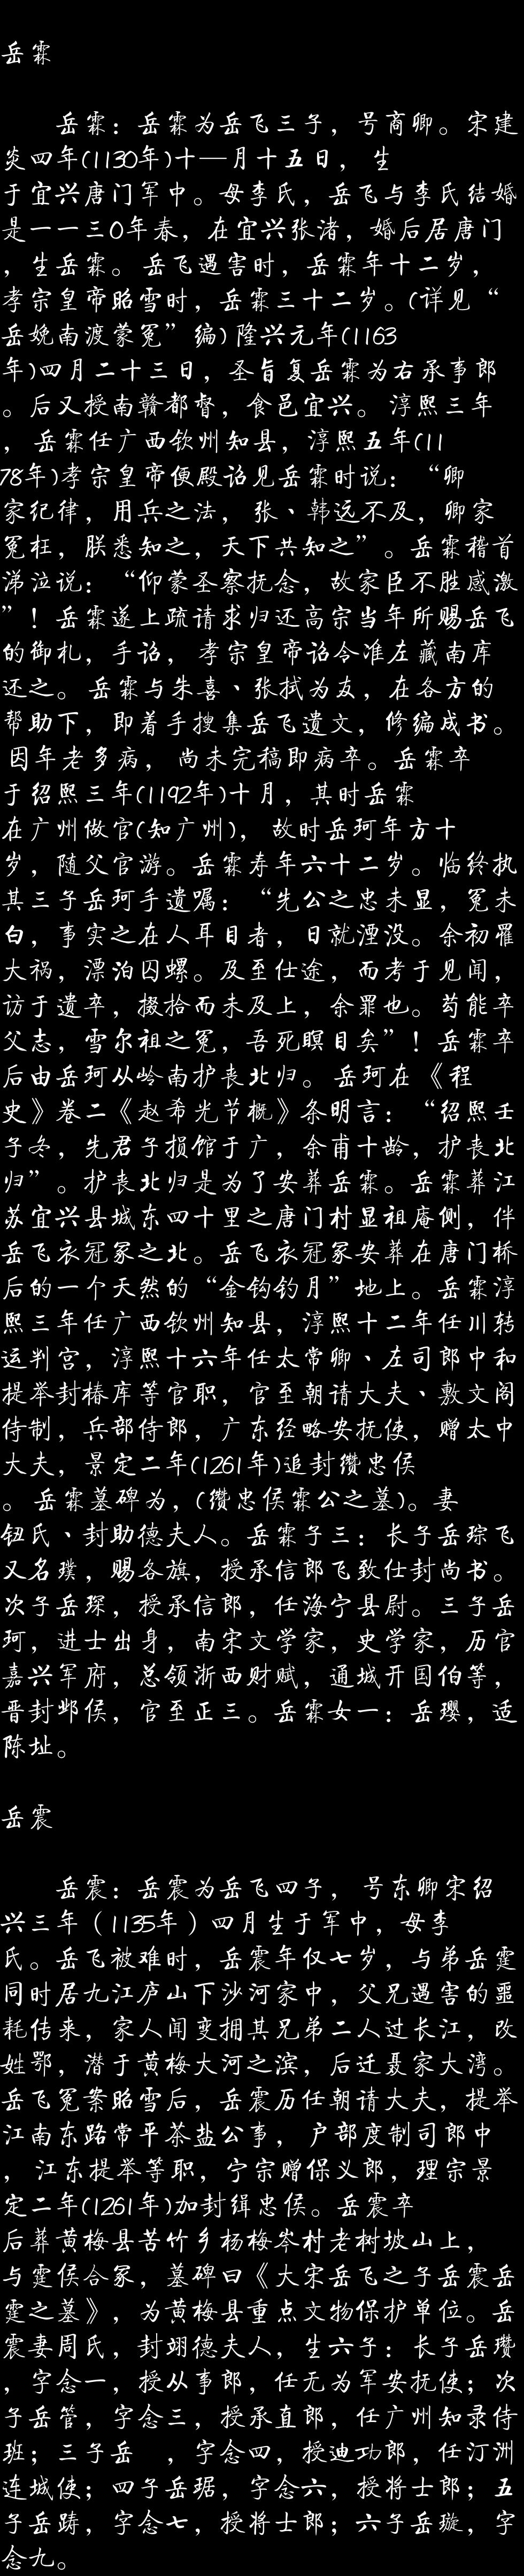 岳霖
岳霖：岳霖为岳飞三子，号商卿。宋建
炎四年(1130年)十一月十五日，生
于宜兴唐门军中。母李氏，岳飞与李氏结婚
是一一三0年春，在宜兴张渚，婚后居唐门
，生岳霖。岳飞遇害时，岳霖年十二岁，
孝宗皇帝昭雪时，岳霖三十二岁。(详见“
岳娩南渡蒙冤”编)隆兴元年(1163
年)四月二十三日，圣旨复岳霖为右承事郎
。后又授南赣都督，食邑宜兴。淳熙三年
，岳霖任广西钦州知县，淳熙五年(11
78年)孝宗皇帝便殿诏见岳霖时说：“卿
家纪律，用兵之法，张、韩远不及，卿家
冤枉，朕悉知之，天下共知之”。岳霖稽首
涕泣说：“仰蒙圣察抚念，故家臣不胜感激
”！岳霖遂上疏请求归还高宗当年所赐岳飞
的御札，手诏，孝宗皇帝诏令准左藏南库
还之。岳霖与朱喜、张拭为友，在各方的
帮助下，即着手搜集岳飞遗文，修编成书。
因年老多病，尚未完稿即病卒。岳霖卒
于绍熙三年(1192年)十月，其时岳霖
在广州做官(知广州)，故时岳珂年方十
岁，随父官游。岳霖寿年六十二岁。临终执
其三子岳珂手遗嘱：“先公之忠未显，冤未
白，事实之在人耳目者，日就湮没。余初罹
大祸，漂泊囚螺。及至仕途，而考于见闻，
访于遗卒，掇拾而未及上，余罪也。苟能卒
父志，雪尔祖之冤，吾死瞑目矣”！岳霖卒
后由岳珂从岭南护丧北归。岳珂在《程
史》卷二《赵希光节概》条明言：“绍熙壬
子冬，先君子损馆于广，余甫十龄，护丧北
归”。护丧北归是为了安葬岳霖。岳霖葬江
苏宜兴县城东四十里之唐门村显祖庵侧，伴
岳飞衣冠冢之北。岳飞衣冠冢安葬在唐门桥
后的一个天然的“金钩钓月”地上。岳霖淳
熙三年任广西钦州知县，淳熙十二年任川转
运判宫，淳熙十六年任太常卿、左司郎中和
提举封椿库等官职，官至朝请大夫、敷文阁
侍制，兵部侍郎，广东经略安抚使，赠太中
大夫，景定二年(1261年)追封缵忠侯
。岳霖墓碑为，(缵忠侯霖公之墓)。妻
钮氏、封助德夫人。岳霖子三：长子岳琮飞
又名璞，赐各旗，授承信郎飞致仕封尚书。
次子岳琛，授承信郎，任海宁县尉。三子岳
珂，进士出身，南宋文学家，史学家，历官
嘉兴军府，总领浙西财赋，通城开国伯等，
晋封邺侯，官至正三。岳霖女一：岳璎，适
陈址。
岳震
岳震：岳震为岳飞四子，号东卿宋绍
兴三年（1135年）四月生于军中，母李
氏。岳飞被难时，岳震年仅七岁，与弟岳霆
同时居九江庐山下沙河家中，父兄遇害的噩
耗传来，家人闻变拥其兄弟二人过长江，改
姓鄂，潜于黄梅大河之滨，后迁聂家大湾。
岳飞冤案昭雪后，岳震历任朝请大夫，提举
江南东路常平茶盐公事，户部度制司郎中
，江东提举等职，宁宗赠保义郎，理宗景
定二年(1261年)加封缉忠侯。岳震卒
后葬黄梅县苦竹乡杨梅岑村老树坡山上，
与霆侯合冢，墓碑曰《大宋岳飞之子岳震岳
霆之墓》，为黄梅县重点文物保护单位。岳
震妻周氏，封翊德夫人，生六子：长子岳瓒
，字念一，授从事郎，任无为军安抚使；次
子岳管，字念三，授承直郎，任广州知录侍
班；三子岳　，字念四，授迪功郎，任汀洲
连城使；四子岳琚，字念六，授将士郎；五
子岳踌，字念七，授将士郎；六子岳璇，字
念九。